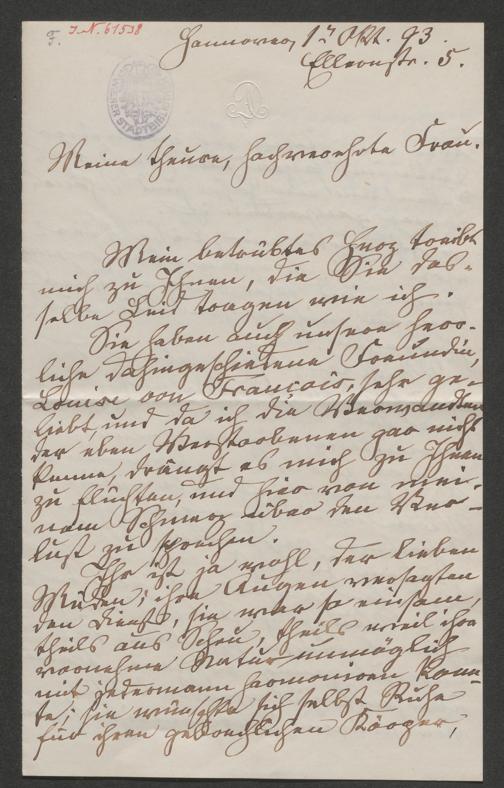 J.N. 61538
Hannover, 1t Okt. 93.
Ellernstr. 5.
Meine theure, hochverehrte Frau.
Mein betrübtes Herz treibt
mich zu Ihnen, die Sie das-
selbe Leid tragen wie ich.
Sie haben auch unsere herr-
liche dahingeschiedene Freundin,
Louise von François, sehr ge-
liebt, und da ich die Verwandten
der eben Verstorbenen gar nicht
kenne, drängt es mich zu Ihnen
zu flüchten, und hier von mei-
nem Schmerz über den Ver-
lust zu sprechen.
Ihr ist ja wohl, der lieben
Müden; ihre Augen versagten
den Dienst, sie war so einsam,
theils aus Scheu, theils weil ihre
vornehme Natur unmöglich
mit jedermann harmoniren konn-
te; sie wünschte sich selbst Ruhe
für ihren gebrechlichen Körper,